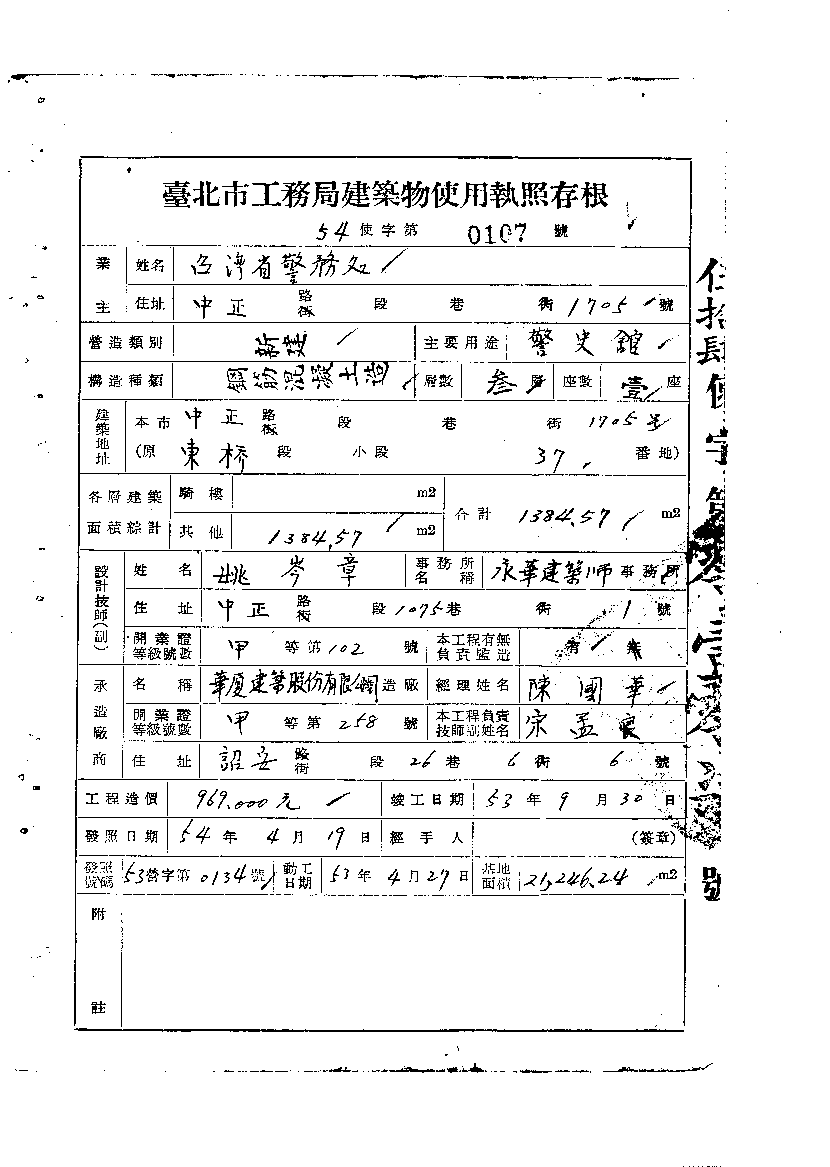 臺北市工務局建築物使用執照存根
54使字第 0107 號
業主 姓名 台灣省警務処
住址 中正 路街 段 巷 街 1705 號
營造類別 新建 主要用途 警史館
構造種類 鋼筋混凝土造 層數 叁層 座數 壹座
建築地址 本市 中正 路街 段 巷 街 1705号
(原 東橋 段 小段 37 番地)
各層建築面積綜計 騎樓 m2 合計 1384.57 m2
其他 1384.57 m2
設計技師(副) 姓名 姚岑章 事務所名稱 永華建築師事務所
住址 中正 路街 段 1075巷 街 1 號
開業證等級號數 甲 等第 102 號 本工程有無負責監造 有
承造廠商 名稱 華廈建築股份有限公司 造廠 經理姓名 陳國華
開業證等級號數 甲 等第 258 號 本工程負責技師副姓名 宗孟
住址 詔安 路街 段 26巷 6街 6 號
工程造價 969.000元 竣工日期 53年9月30日
發照日期 54年4月19日 經手人 (簽章)
發照號碼 53營字第0134號 動工日期 53年4月27日 基地面積 21,246.24 m2
附註
伍拾肆使字第零壹零 號